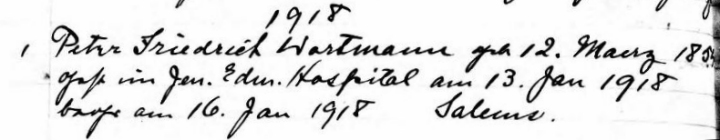 1918
1 Peter Friedrich Wortmann geb 12. Maerz 185
gest im Jen. Edw. Hospital am 13. Jan 1918
begr am 16. Jan 1918 Salems.